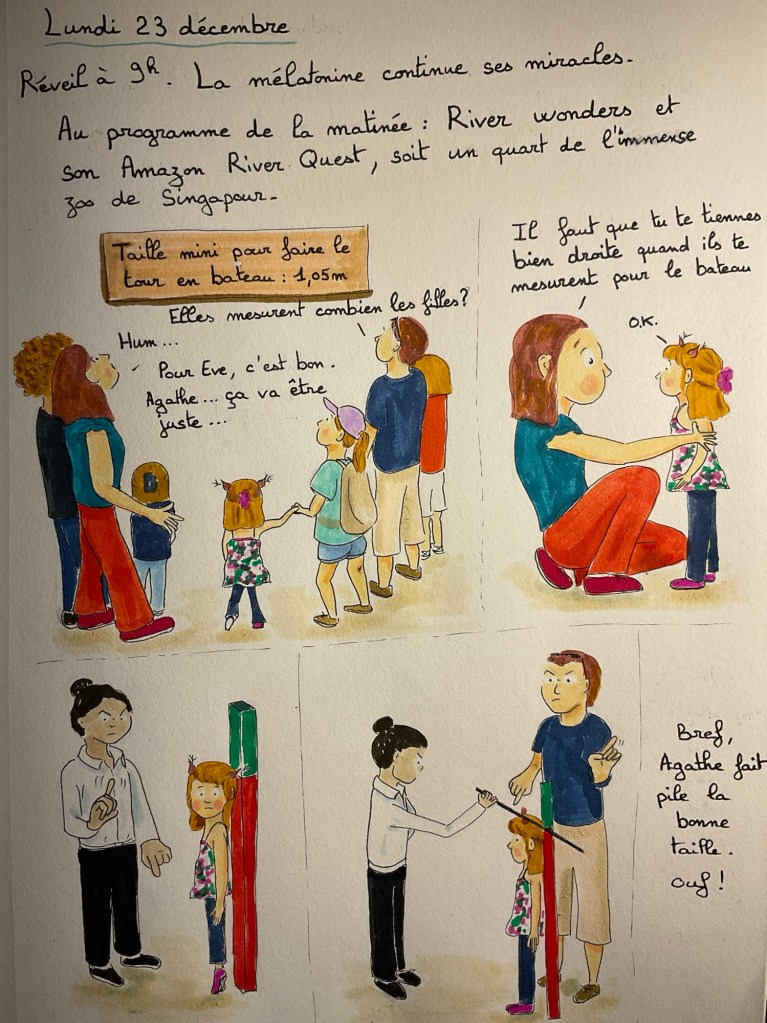 Lundi 23 décembre
Réveil à 9h. La mélatonine continue ses miracles.
Au programme de la matinée : River wonders et
son Amazon River Quest, soit un quart de l'immense
zoo de Singapour.
Taille mini pour faire le
tour en bateau : 1,05m
Elles mesurent combien les filles ?
Hum...
Pour Eve, c'est bon.
Agathe... ça va être
juste...
Il faut que tu te tiennes
bien droite quand ils te
mesurent pour le bateau
O.K.
Bref,
Agathe fait
pile la
bonne
taille.
Ouf !